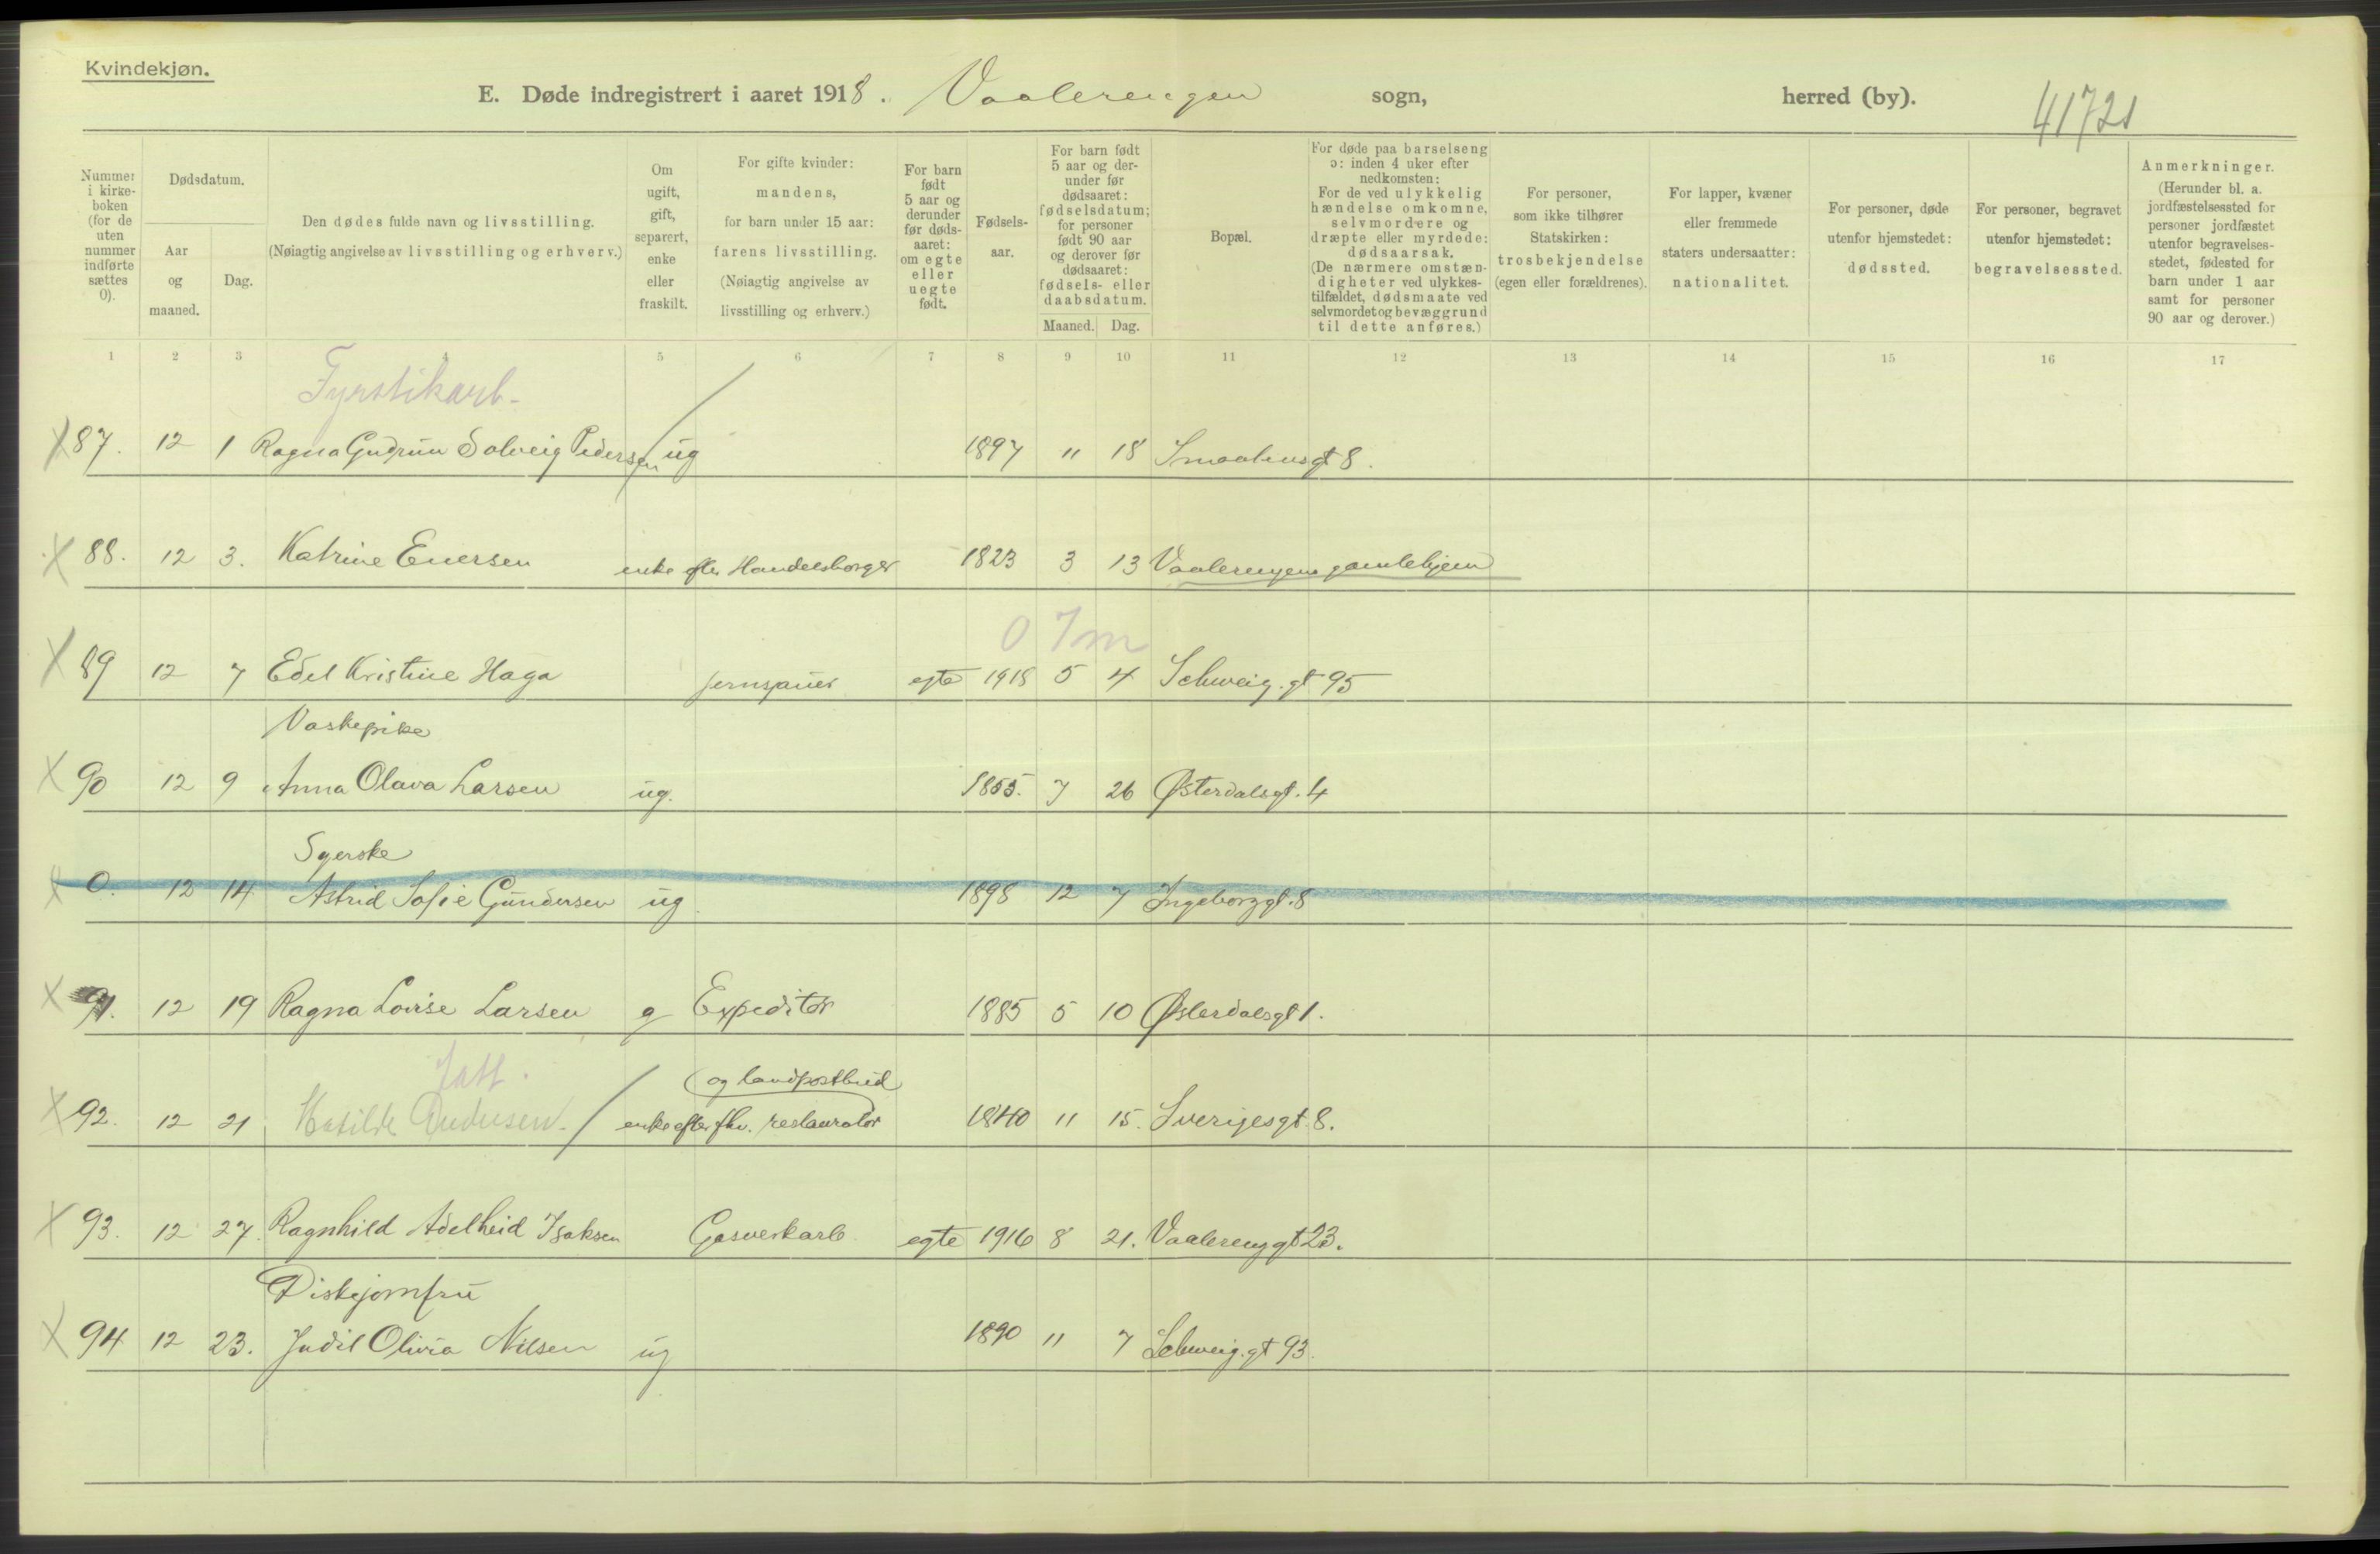 Kvindekjøn.
E. Døde indregistrert i aaret 1918. Vaalerengen sogn, herred (by). 41721
Nummer i kirkeboken (for de uten nummer indførte sættes 0).
Dødsdatum.
Aar og maaned.
Dag.
Den dødes fulde navn og livsstilling.
(Nøiagtig angivelse av livsstilling og erhverv.)
Om ugift, gift, separert, enke eller fraskilt.
For gifte kvinder: mandens, for barn under 15 aar: farens livsstilling.
(Nøiagtig angivelse av livsstilling og erhverv.)
For barn født 5 aar og derunder før dødsaaret: om egte eller uegte født.
Fødselsaar.
For barn født 5 aar og derunder før dødsaaret: fødselsdatum; for personer født 90 aar og derover før dødsaaret: fødsels- eller daabsdatum.
Maaned. Dag.
Bopæl.
For døde paa barselseng ɔ: inden 4 uker efter nedkomsten:
For de ved ulykkelig hændelse omkomne, selvmordere og dræpte eller myrdede: dødsaarsak.
(De nærmere omstændigheter ved ulykkestilfældet, dødsmaate ved selvmordet og bevæggrund til dette anføres.)
For personer, som ikke tilhører Statskirken: trosbekjendelse (egen eller forældrenes).
For lapper, kvæner eller fremmede staters undersaatter: nationalitet.
For personer, døde utenfor hjemstedet: dødssted.
For personer, begravet utenfor hjemstedet: begravelsessted.
Anmerkninger.
(Herunder bl. a. jordfæstelsessted for personer jordfæstet utenfor begravelsesstedet, fødested for barn under 1 aar samt for personer 90 aar og derover.)
1 2 3 4 5 6 7 8 9 10 11 12 13 14 15 16 17
Fyrstikarb.
X 87. 12 1 Ragna Gudrun Solveig Pedersen ug 1897 11 18 Smaalensgt 8.
X 88. 12 3. Katrine Eversen enke efter Handelsborger 1823 3 13 Vaalerengens gamlehjem
0 7m
X 89 12 7 Edel Kristine Haga egte 1918 5 4 Schweig. gt 95
Vaskepike
X 90 12 9 Anna Olava Larsen ug. 1855. 7 26 Østerdalsgt. 4
Syerske
X 0. 12 14 Astrid Sofie Gundersen ug 1898 12 7 Ingeborggt. 8
X 91. 12 19 Ragna Lovise Larsen g Expeditør 1885 5 10 Østerdalsgt 1.
og landpostbud
X 92. 12 21 Matilde Andersen. enke efter fhv. restauratør 1840 11 15. Sverigesgt. 8.
X 93. 12 27. Ragnhild Adelheid Isaksen Gasverkarb egte 1916 8 21. Vaalerenggt 23.
Diskjomfru
X 94 12 23. Judit Olivia Nilsen ug 1890 11 7 Schweig. gt 93.